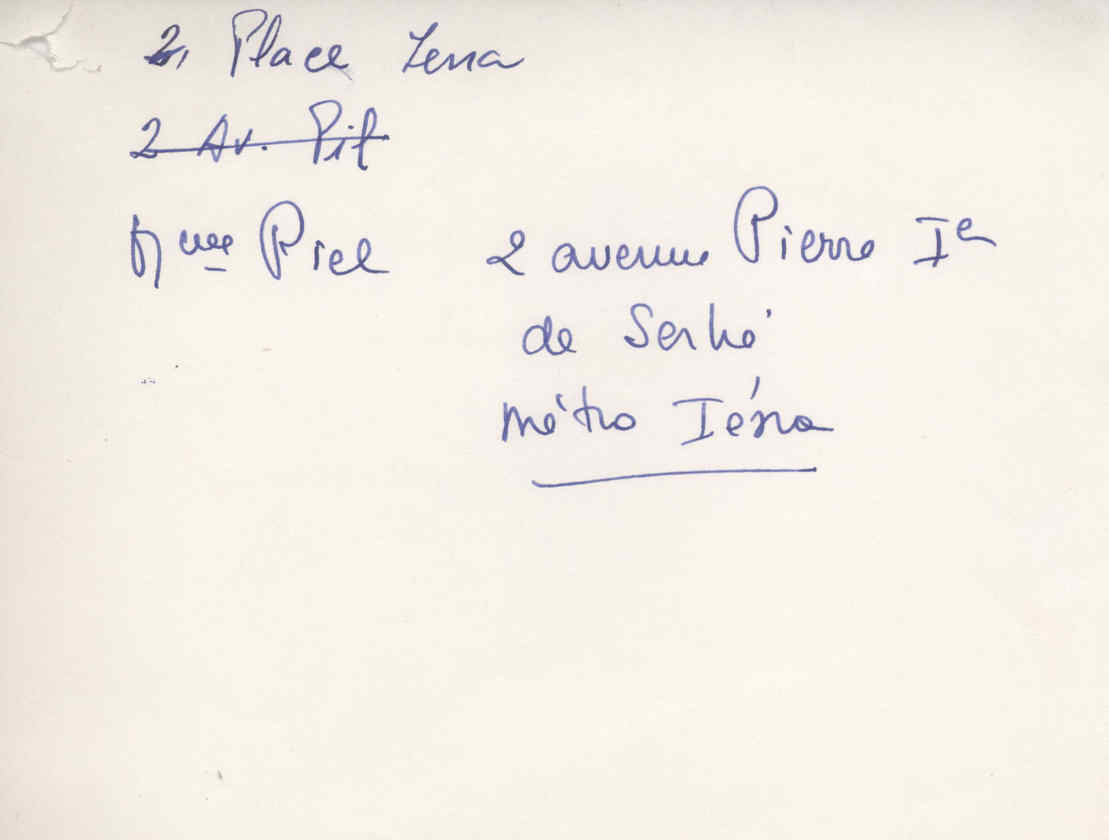 2, Place Iena
2 Av. Pif
Mme Piel 2 avenue Pierre Ier
de Serbé
métro Iéna